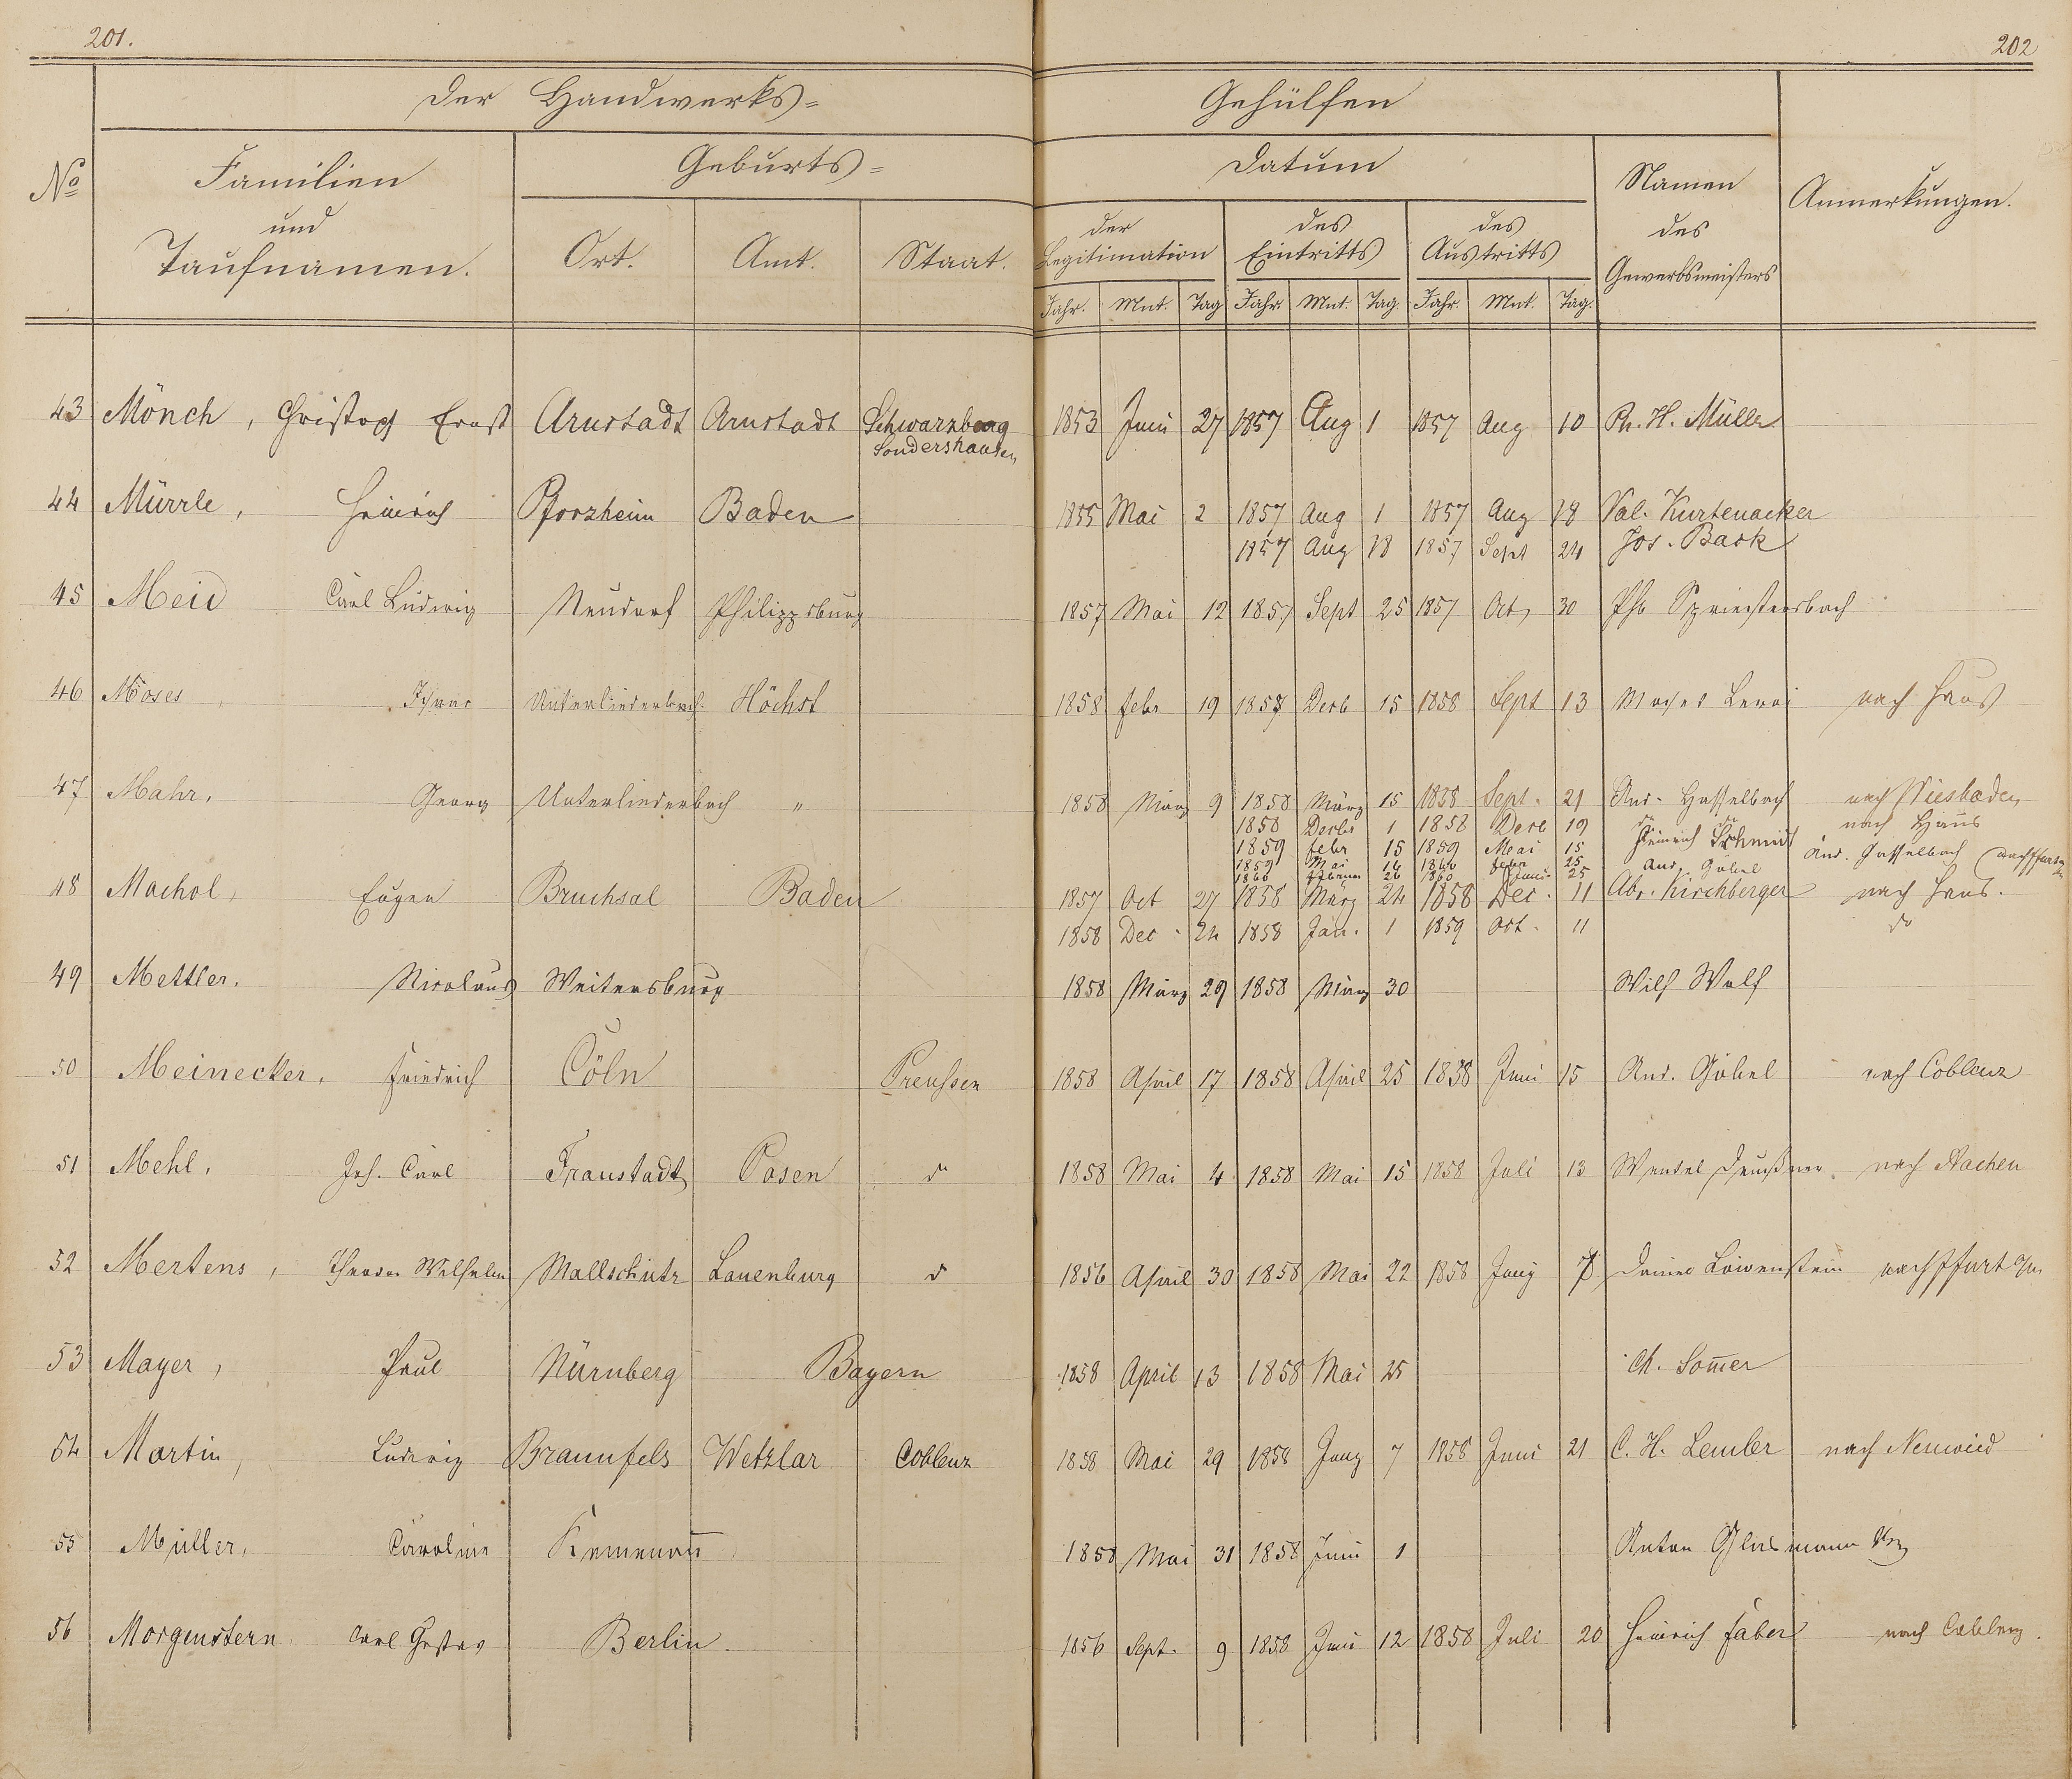 201.
202
Der Handwerks=
Gehülfen
No
Familien
und
Taufnamen.
Geburts=
Ort.
Amt.
Staat.
Datum
der
Legitimation
des
Eintritts
des
Austritts
Jahr. Mnt. Tag Jahr. Mnt. Tag. Jahr. Mnt. Tag.
Namen
des
Gewerbsmeisters
Anmerkungen.
43 Mönch, Christoph Ernst Arnstadt Arnstadt Schwarzburg 1853 Juni 27 1857 Aug 1 1857 Aug 10 Ph. H. Müller
Sondershausen
44 Mürrle, Heinrich Pforzheim Baden 1855 Mai 2 1857 Aug 1 1857 Aug 18 Val. Kurtenacker
1857 Aug 18 1857 Sept 24 Jos. Back
45 Meid Carl Ludwig Neudorf Philippsburg 1857 Mai 12 1857 Sept 25 1857 Oct 30 Phb Spriestersbach
46 Moses, Unterliederbach Höchst 1858 febr 19 1858 Decb 15 1858 Sept 13 Moses nach Haus
47 Mahr, Georg Unterliederbach " 1858 März 9 1858 März 15 1858 Sept. 21 And. Hasselbach nach Wiesbaden
1858 Decbr 1 1858 Decb 19 do nach Haus
1859 febr 15 1859 Mai 15 Heinrich Schmidt
1859 Mai 16 1860 febr 25 And. Göbel And. Hasselbach
1860 26 1860 25
48 Machol, Eugen Bruchsal Baden 1857 Oct 27 1858 März 24 1858 Dec. 11 Abr. Kirchberger nach Haus.
1858 Dec. 24 1858 Jan. 1 1859 Oct. 11 do
49 Mettler. Nicolaus Weitersburg 1858 März 29 1858 März 30 Wilh Wolf
50 Meinecker, Friedrich Cöln Preussen 1858 April 17 1858 April 25 1858 Juni 15 And. Göbel nach Coblenz
51 Mehl, Joh. Carl Fraustadt Posen do 1858 Mai 4 1858 Mai 15 1858 Juli 13 Wendel nach Aachen
52 Mertens, Theodor Wilhelm Mallschütz Lauenburg do 1856 April 30 1858 Mai 22 1858 Juny 7 Löwenstein nach Ffurt
53 Mayer, Paul Nürnberg Bayern 1858 April 13 1858 Mai 25 Ch. Som̄er
54 Martin, Ludwig Braunfels Wetzlar Coblenz 1858 Mai 29 1858 Juny 7 1858 Juni 21 C. H. Lember nach Neuwied
55 Müller, Caroline 1858 Mai 31 1858 Juni 1 Anton
56 Morgenstern Carl Gustav Berlin. 1856 Sept. 9 1858 Juni 12 1858 Juli 20 Heinrich Faber nach Coblenz.